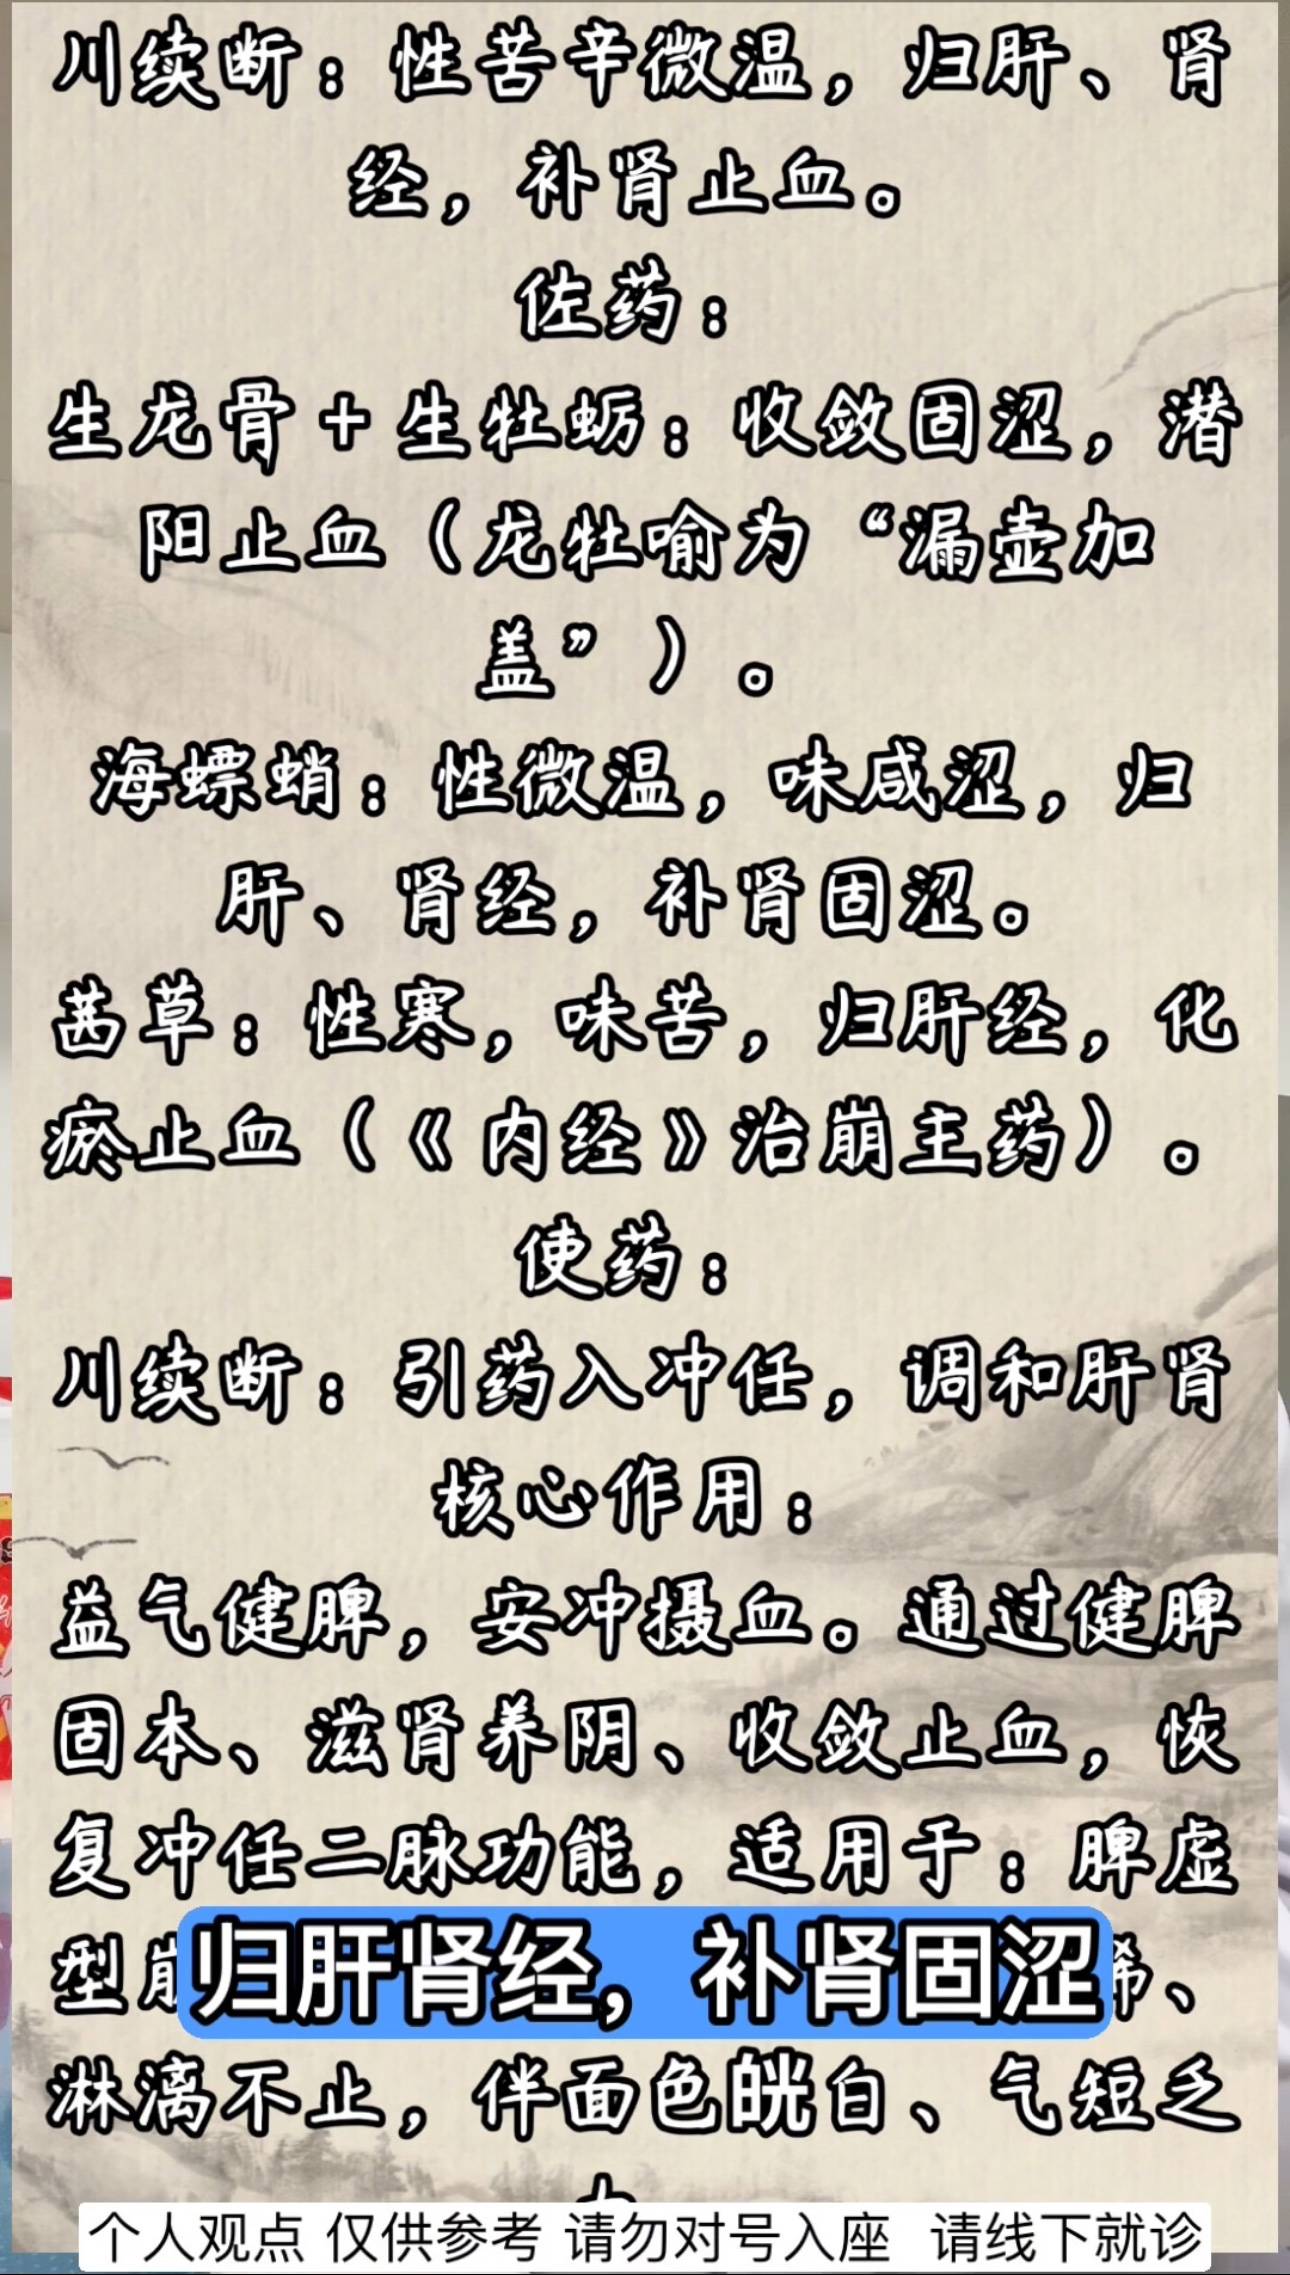 川续断：性苦辛微温，归肝、肾
经，补肾止血。
佐药：
生龙骨＋生牡蛎：收敛固涩，潜
阳止血（龙牡喻为“漏壶加
盖”）。
海螵蛸：性微温，味咸涩，归
肝、肾经，补肾固涩。
茜草：性寒，味苦，归肝经，化
瘀止血（《内经》治崩主药）。
使药：
川续断：引药入冲任，调和肝肾
核心作用：
益气健脾，安冲摄血。通过健脾
固本、滋肾养阴、收敛止血，恢
复冲任二脉功能，适用于：脾虚
型
归肝肾经，补肾固涩
、
淋漓不止，伴面色㿠白、气短乏
个人观点 仅供参考 请勿对号入座 请线下就诊